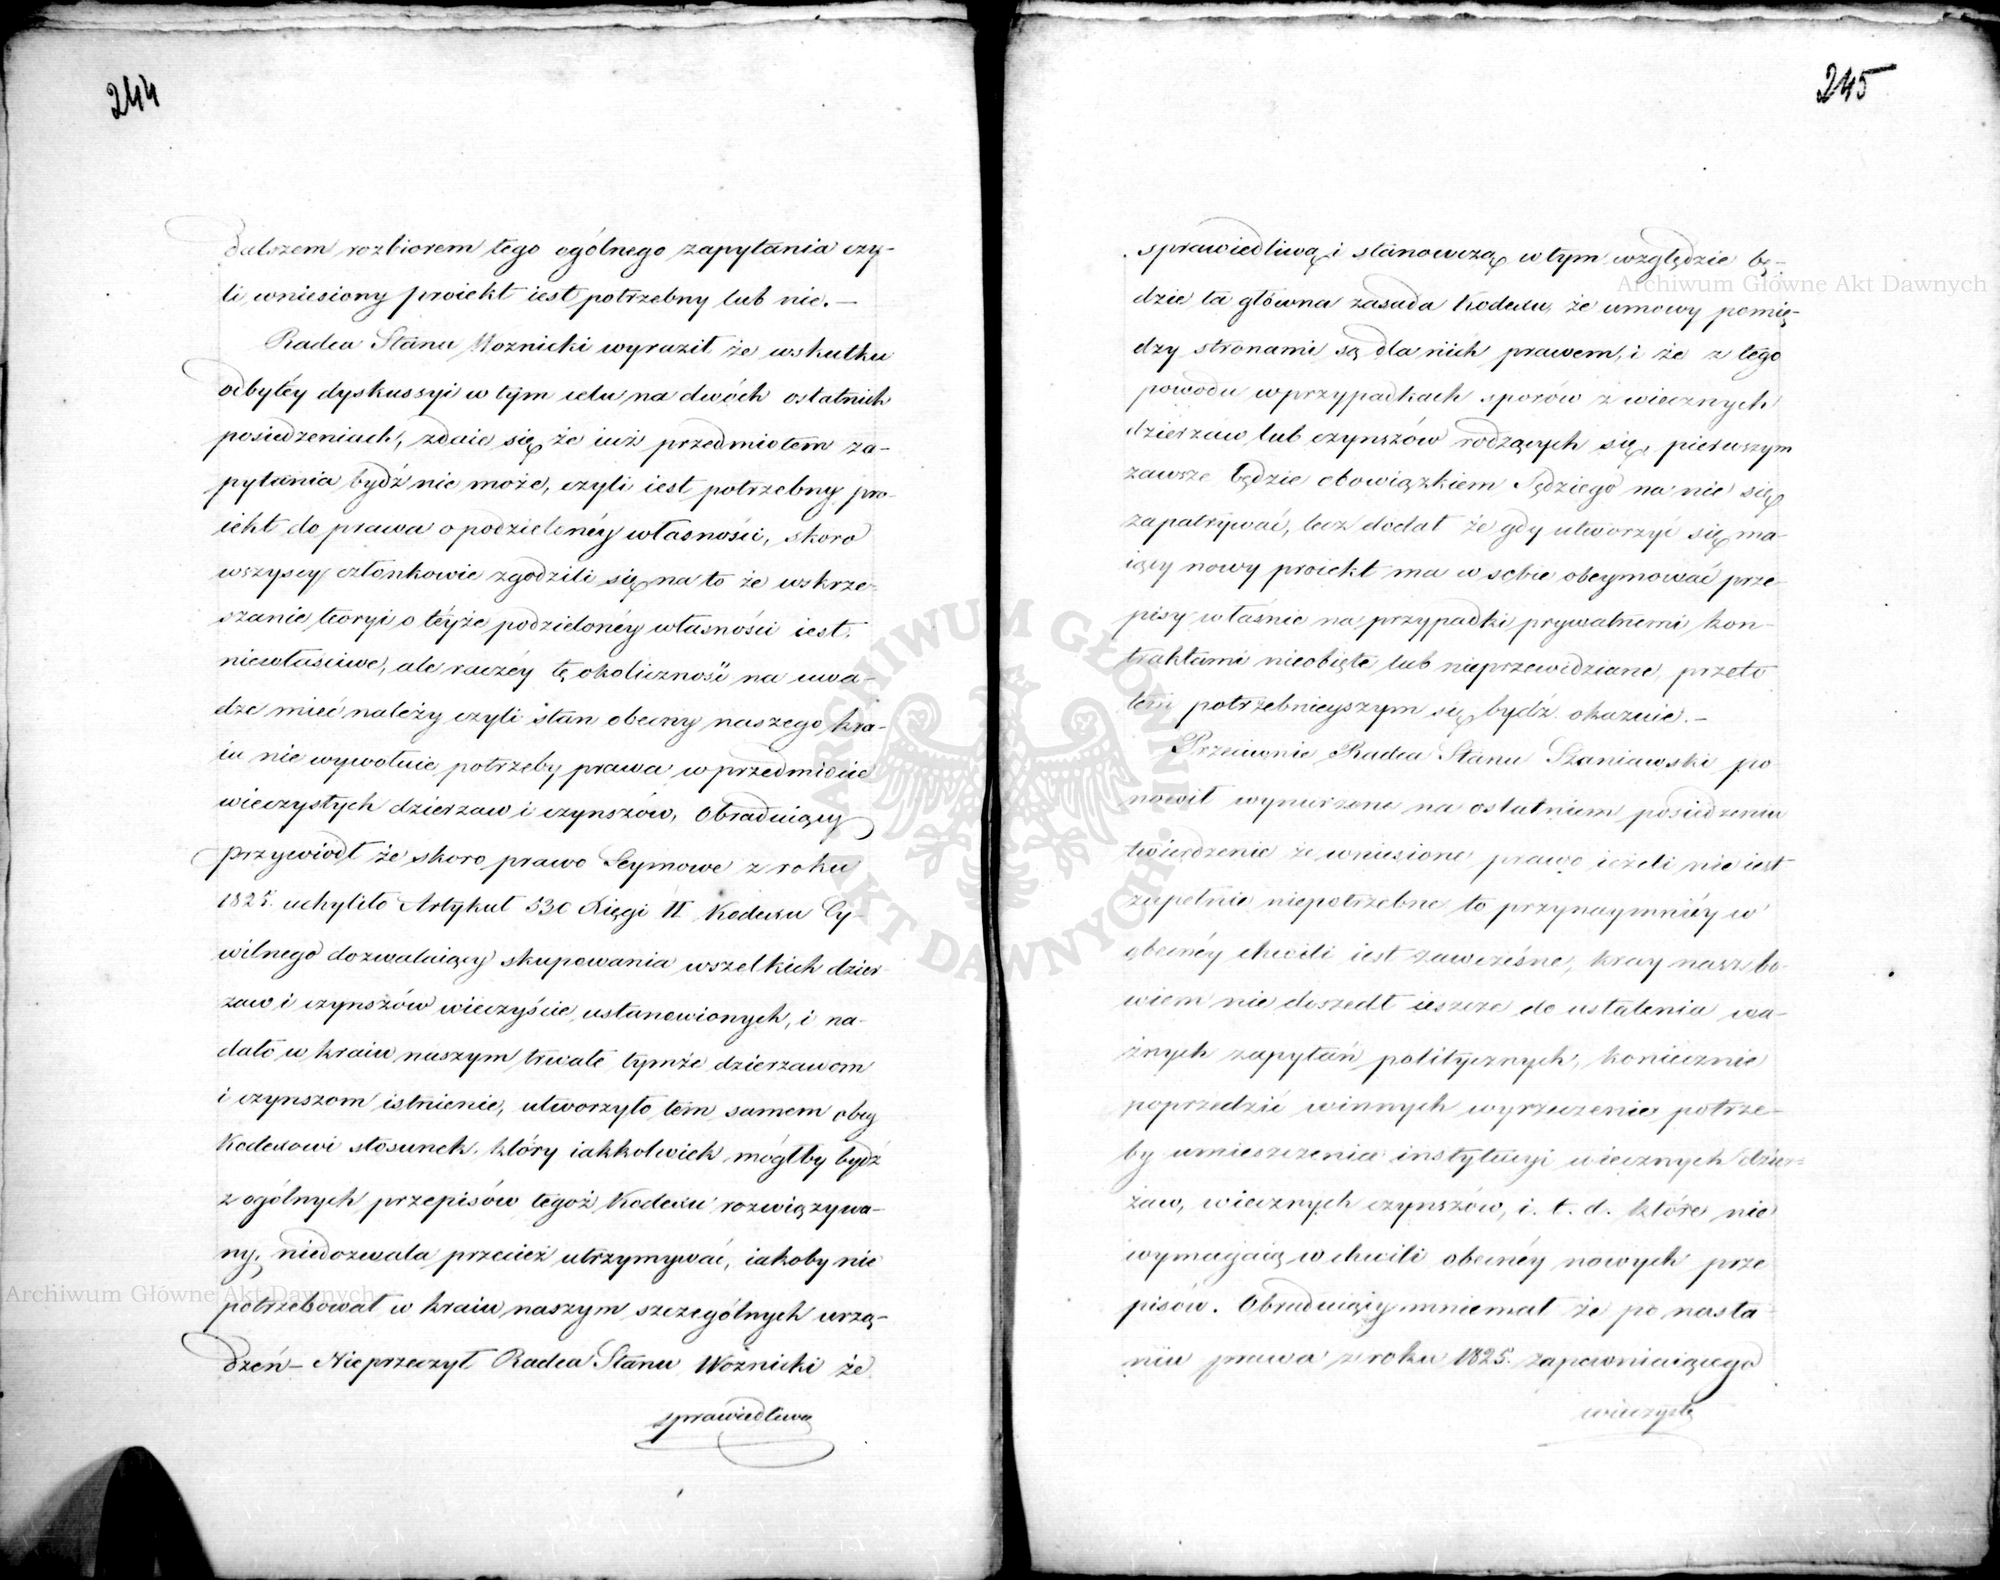 244
dalszem rozbiorem tego ogólnego zapytania czy-
li wniesiony proiekt iest potrzebny lub nie. —
Radca Stanu Woznicki wyraził że wskutku
odbytéy dyskussyi w tym celu na dwóch ostatnich
posiedzeniach, zdaie się że iuż przedmiotem za-
pytania bydź nie może, czyli iest potrzebny pro-
iekt do prawa o podzielonéy własności, skoro
wszyscy członkowie zgodzili się na to że wskrze-
szanie teoryi o téyże podzielonéy własności iest
niewłaściwe, ale raczéy tę okoliczność na uwa-
dze mieć należy czyli stan obecny naszego kra-
iu nie wywołuie potrzeby prawa w przedmiocie
wieczystych dzierzaw i czynszów, Obraduiący
przywiodł że skoro prawo Seymowe z roku
1825. uchyliło Artykuł 530 Xięgi II Kodexu Cy-
wilnego dozwalaiący skupowania wszelkich dzier-
zaw i czynszów wieczyście ustanowionych, i na-
dało w kraiu naszym trwałe tymże dzierzawom
i czynszom istnienie, utworzyło tém samem obcy
Kodexowi stosunek, który iakkolwiek mógłby bydź
z ogólnych przepisów tegoż Kodexu rozwiązywa-
ny, niedozwala przecież utrzymywać, iakoby nie
potrzebował w kraiu naszym szczególnych urzą-
dzeń — Nieprzeczył Radca Stanu Woźnicki że
sprawiedliwą
245
sprawiedliwą i stanowczą w tym względzie bę-
dzie ta główna zasada Kodexu, że umowy pomię-
dzy stronami są dla nich prawem, i że z tego
powodu w przypadkach sporów z wiecznych
dzierzaw lub czynszów rodzących się, pierwszym
zawsze będzie obowiązkiem Sędziego na nie się
zapatrywać, lecz dodał że gdy utworzyć się ma-
iący nowy proiekt ma w sobie obeymować prze-
pisy właśnie na przypadki prywatnemi kon-
traktami nieobięte lub nieprzewidziane, przeto
tém potrzebnieyszym się bydź okazuie. —
Przeciwnie Radca Stanu Szaniawski po-
nowił wynurzone na ostatniem posiedzeniu
twierdzenie że wniesione prawo ieżeli nie iest
zupełnie niepotrzebne to przynaymniéy w
obecnéy chwili iest zawczésne, kray nasz bo-
wiem nie doszedł ieszcze do ustalenia wa-
żnych zapytań politycznych, koniecznie
poprzedzić winnych wyrzeczenie potrze-
by umieszczenia instytucyi wiecznych dzier-
żaw, wiecznych czynszów, i. t. d. które nie
wymagaią w chwili obecnéy nowych prze
pisów. Obraduiący mniemał że po nasta-
niu prawa z roku 1825. zapewniaiącego
wieczystą
Archiwum Główne Akt Dawnych
Archiwum Główne Akt Dawnych
ARCHIWUM GŁÓWNE AKT DAWNYCH